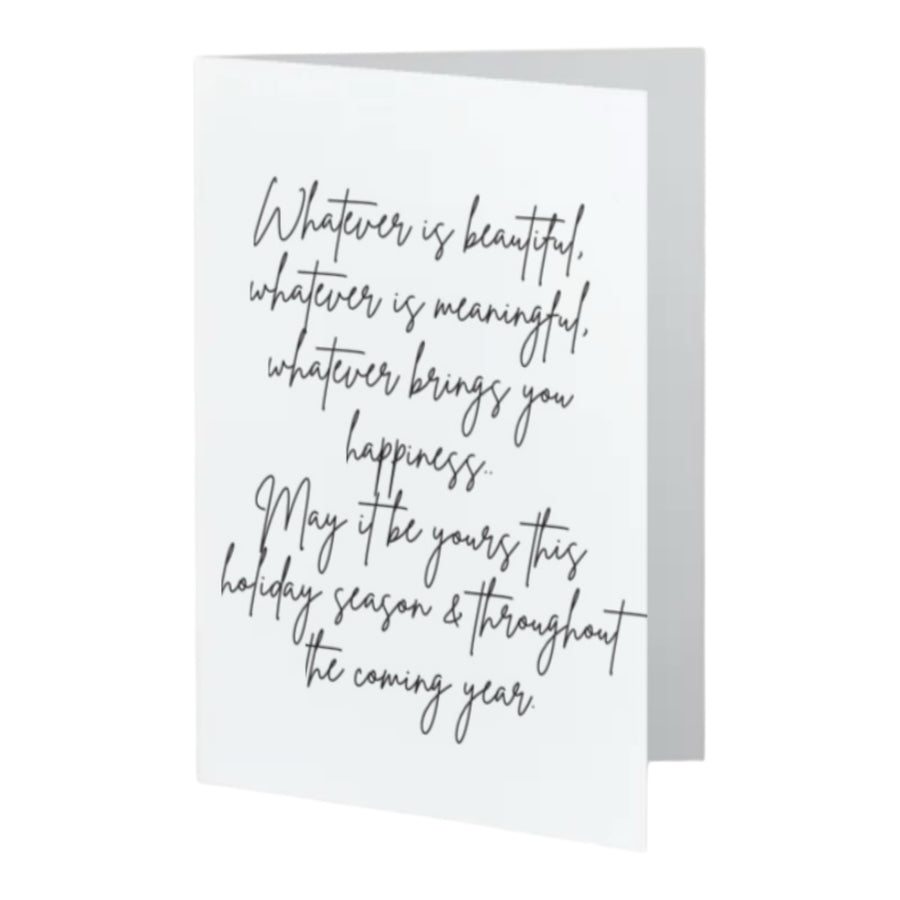 Whatever is beautiful,
whatever is meaningful,
whatever brings you
happiness..
May it be yours this
holiday season & throughout
the coming year.